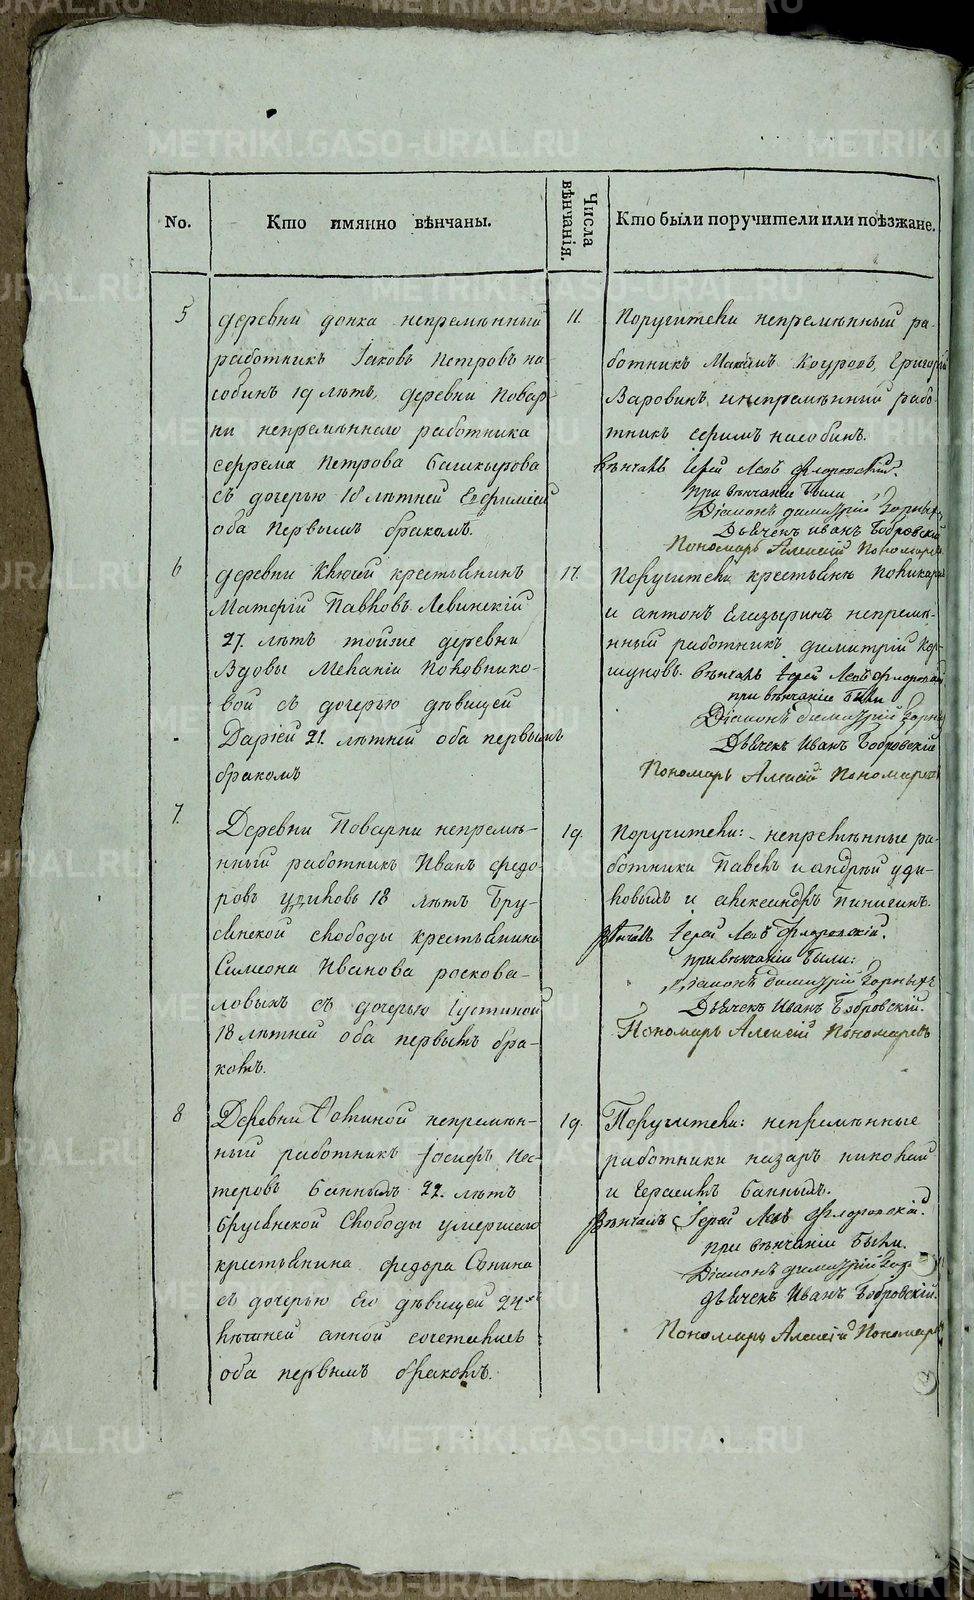 METRIKI.GASO-URAL.RU
No.
Кто имянно вѣнчаны.
Числа вѣнчанія.
Кто были поручители или поѣзжане.
5
деревни непремѣнный
работникъ Іаковъ Петровъ на
собинъ 19 лѣтъ, деревни Повар-
ни непремѣннаго работника
Петрова Башкырова
съ дочерью 18 лѣтней Евфиміей
оба первымъ бракомъ.
11.
Поручители непремѣнный ра-
ботникъ Максимъ Коуровъ, Григорій
Варовинъ и непремѣнный рабо-
тникъ насобинъ.
Вѣнчалъ Іерей Левъ Флоровскій.
при вѣнчаніи были
Діаконъ димитрій Горныхъ
Дьячекъ иванъ Бобровскій
Пономарь Алексій Пономаревъ
6
деревни Ключей крестьянинъ
Матфій Павловъ Левинскій
27. лѣтъ тойже деревни
Вдовы Меланіи Половнико-
вой съ дочерью дѣвицей
Даріей 21. лѣтней оба первымъ
бракомъ
17.
Поручители крестьяне Поликарпъ
и антонъ Елизыринъ непремѣ-
нный работникъ димитрій Кор-
шуновъ. Вѣнчалъ Іерей Левъ Флоровскій
при вѣнчаніи были
Діаконъ димитрій Горныхъ
Дьячекъ Иванъ Бобровскій
Пономарь Алексій Пономаревъ
7.
Деревни Поварни непремѣ-
нный работникъ Иванъ Федо-
ровъ удиловъ 18 лѣтъ Бру-
сянской слободы крестьянина
Симеона Иванова росковa-
ловыхъ съ дочерью Іустиной
18 лѣтней оба первымъ бра-
комъ.
19.
Поручители: непремѣнные ра-
ботники Павелъ и андрей уди-
ловымъ и александръ Пинигинъ.
Вѣнчалъ Іерей Левъ Флоровскій.
при вѣнчаніи были:
Діаконъ димитрій Горныхъ
Дьячекъ Иванъ Бобровскій.
Пономарь Алексій Пономаревъ
8
Деревни непремѣн-
ный работникъ Іосифъ Нес-
теровъ Банныхъ 22. лѣтъ
Брусянской Слободы умершаго
крестьянина федора Сонина
съ дочерью Его дѣвицей 24хъ
лѣтней анной сочетались
оба первымъ бракомъ.
19.
Поручители: непремѣнные
работники назаръ николай
и Герасимъ Банныхъ.
Вѣнчалъ Іерей Левъ Флоровскій.
при вѣнчаніи были.
Діаконъ димитрій Гор
дьячекъ Иванъ Бобровскій.
Пономарь Алексій Пономаревъ